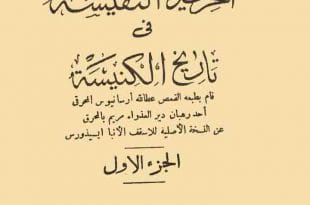 الخريدة النفيسة
فى
تاريخ الكنيسة
قام بطبعه القمص عطالله أرسانيوس المحرقى
أحد رهبان دير العذراء مريم بالمحرق
عن النسخة الأصلية للاسقف الأنبا ايسيذورس
الجزء الاول